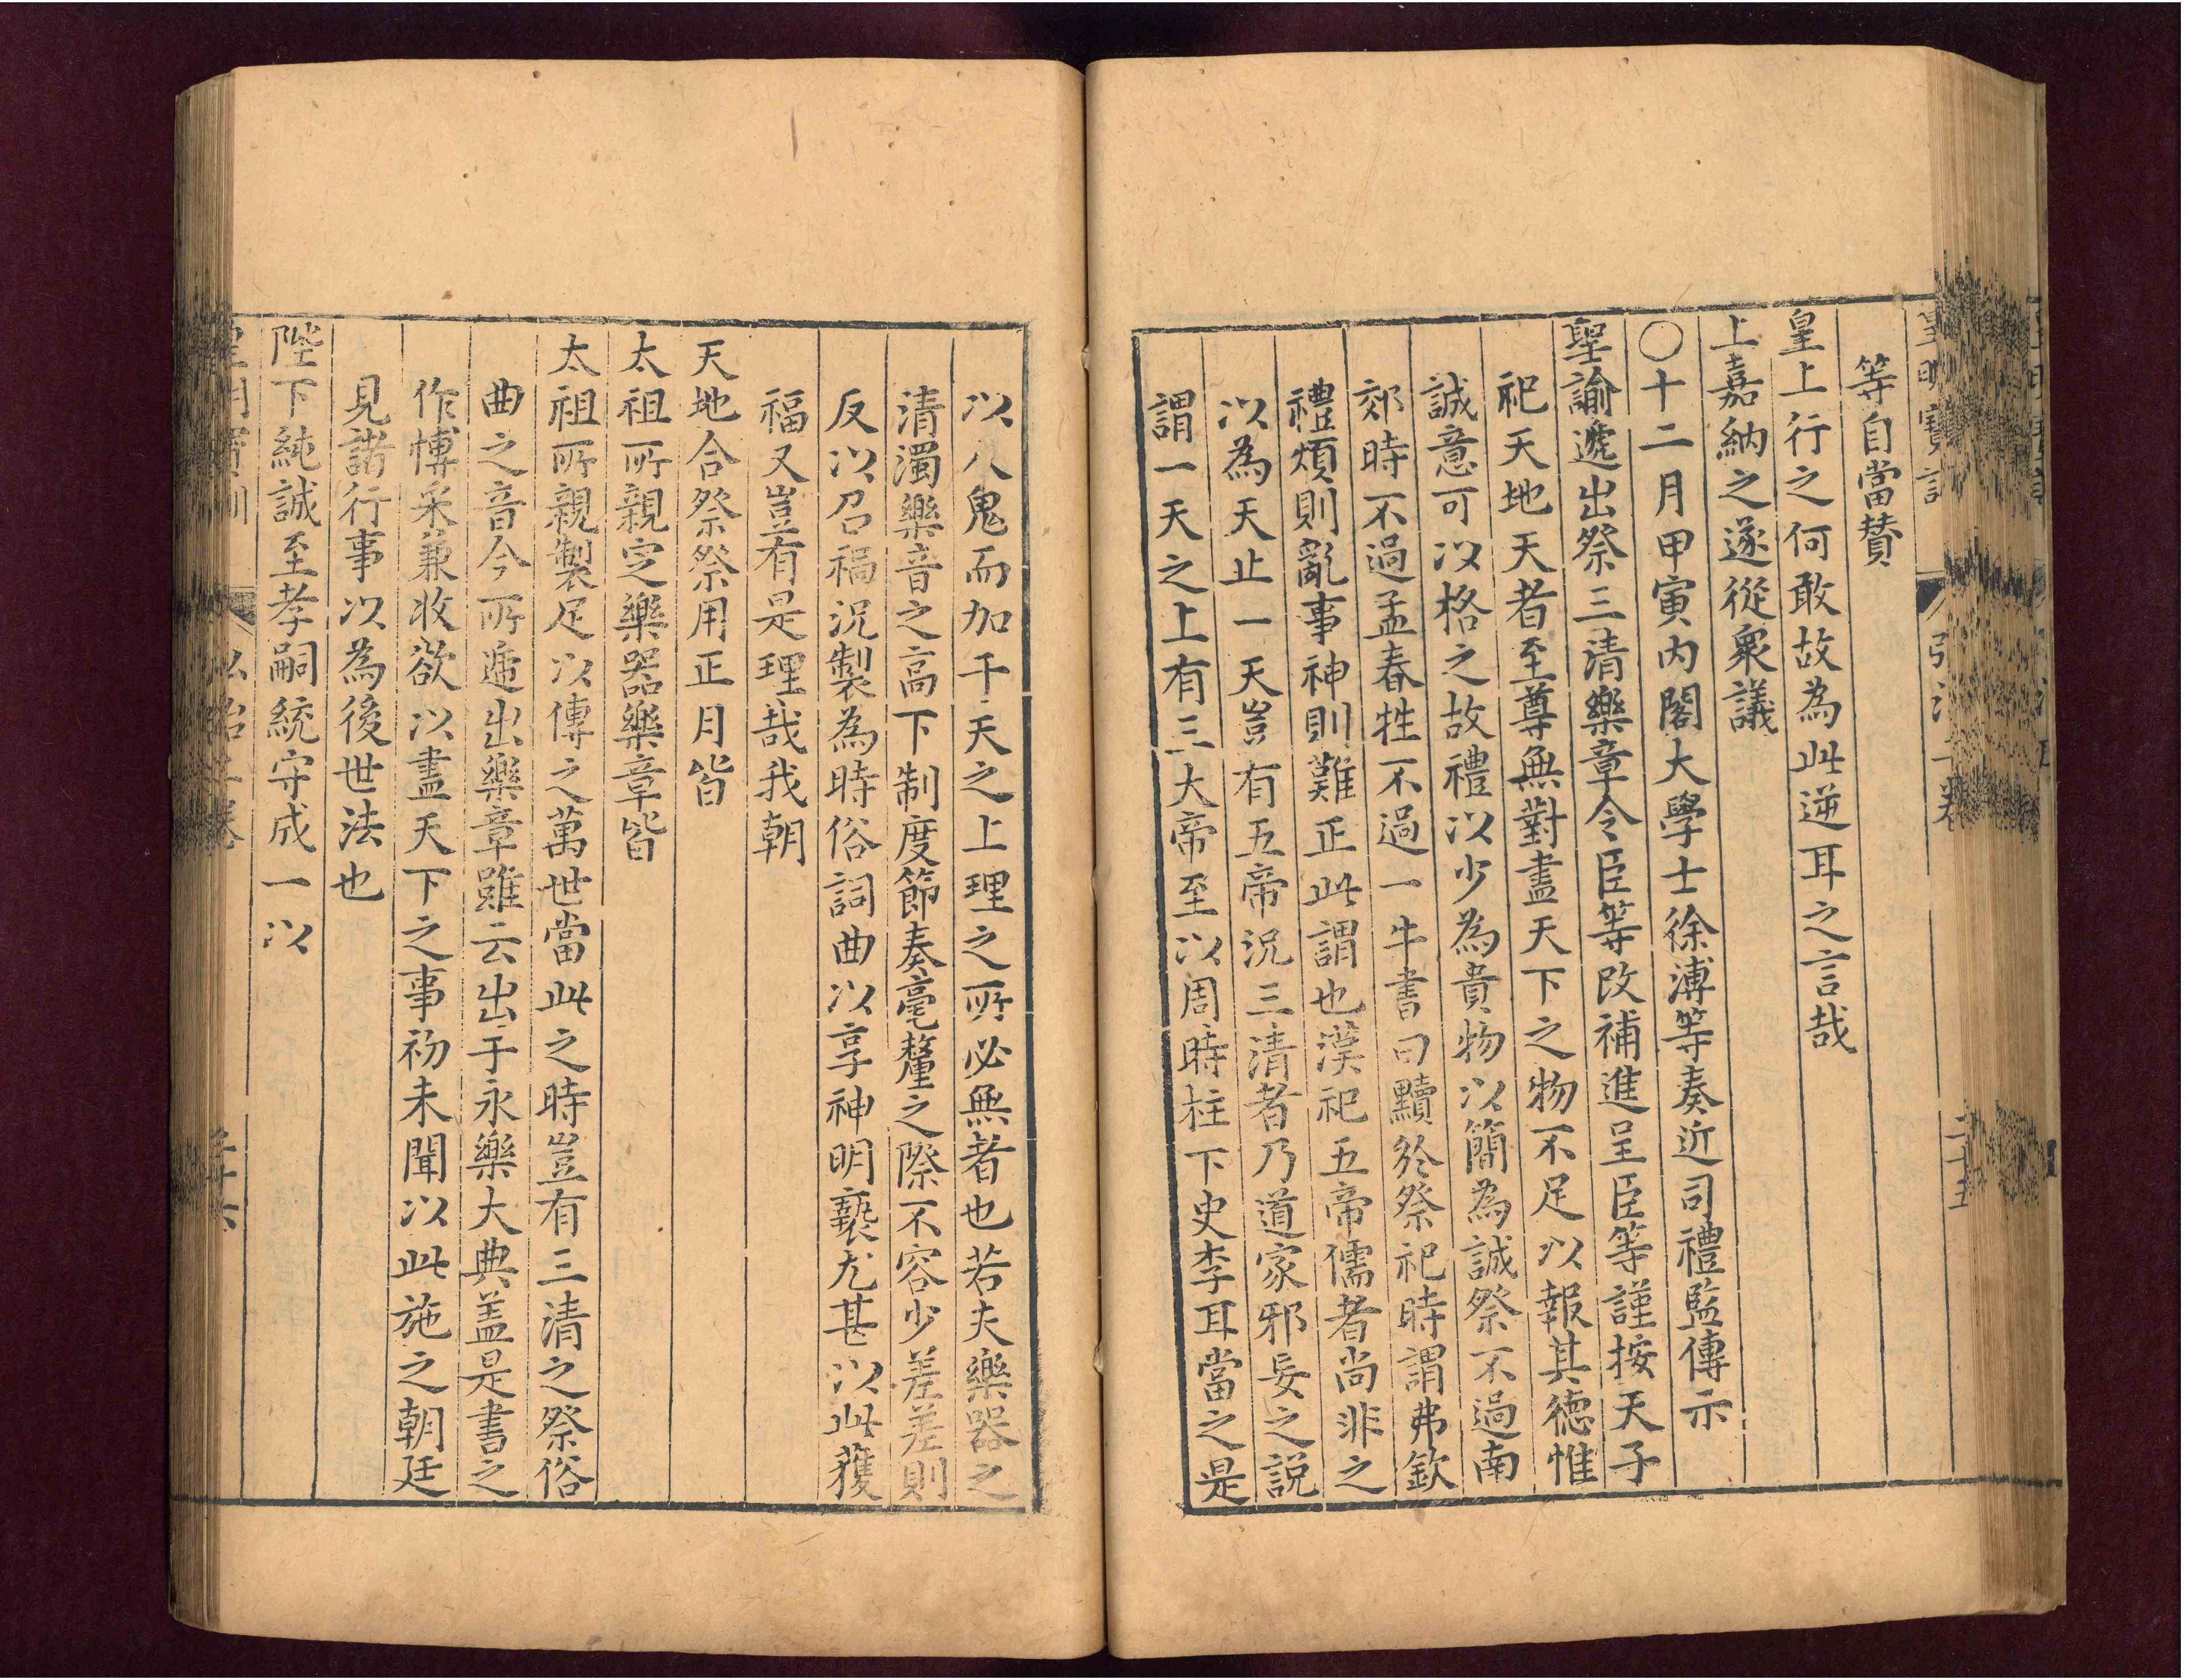 皇明寶訓 弘治二卷 二十五
等自當贊
皇上行之何敢故為此逆耳之言哉
上嘉納之遂從衆議
〇十二月甲寅內閣大學士徐溥等奏近司禮監傳示
聖諭遞出祭三清樂章令臣等改補進呈臣等謹按天子
祀天地天者至尊無對盡天下之物不足以報其德惟
誠意可以格之故禮以少為貴物以簡為誠祭不過南
郊時不過孟春牲不過一牛書曰黷於祭祀時謂弗欽
禮煩則亂事神則難正此謂也漢祀五帝儒者尚非之
以為天止一天豈有五帝況三清者乃道家邪妄之說
謂一天之上有三大帝至以周時柱下史李耳當之是
以人鬼而加于天之上理之所必無者也若夫樂器之
清濁樂音之高下制度節奏毫釐之際不容少差差則
反以召禍況製為時俗詞曲以享神明褻尤甚以此獲
福又豈有是理哉我朝
天地合祭祭用正月皆
太祖所親定樂器樂章皆
太祖所親製足以傳之萬世當此之時豈有三清之祭俗
曲之音今所遞出樂章雖云出于永樂大典盖是書之
作博采兼收欲以盡天下之事初未聞以此施之朝廷
見諸行事以為後世法也
陛下純誠至孝嗣統守成一以
皇明寶訓 弘治二卷 二十六